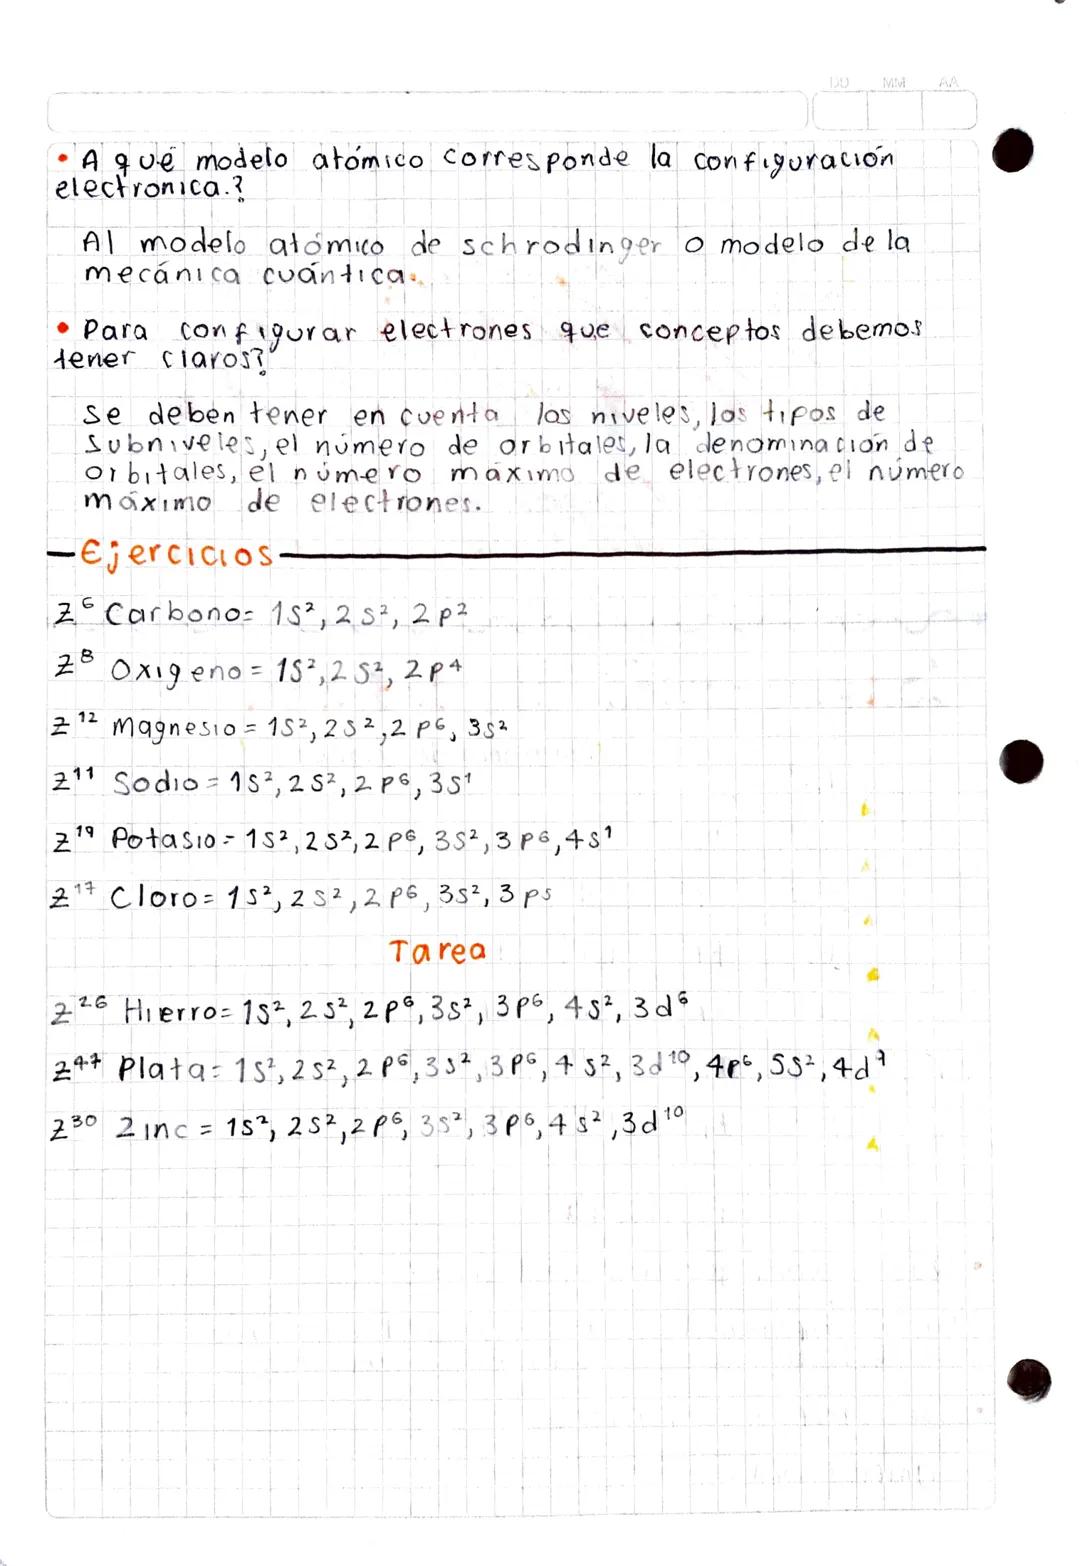 DD MM AA
• A qué modelo atómico corresponde la configuración
electronica.?
Al modelo atómico de schrodinger o modelo de la
mecánica cuántica.
• Para configurar electrones que conceptos debemos
tener claros?
Se deben tener en cuenta los niveles, los tipos de
subniveles, el número de orbitales, la denominación de
orbitales, el número máximo de electrones, el número
máximo de electrones.
Ejercicios
Z⁶ Carbono= 1S², 2S², 2p²
Z⁸ Oxigeno = 1S², 2S², 2p⁴
Z¹² Magnesio = 1S², 2S², 2p⁶, 3S²
Z¹¹ Sodio = 1S², 2S², 2p⁶, 3S¹
Z¹⁹ Potasio = 1S², 2S², 2p⁶, 3S², 3p⁶, 4S¹
Z¹⁷ Cloro= 1S², 2S², 2p⁶, 3S², 3p⁵
Tarea
Z²⁶ Hierro= 1S², 2S², 2p⁶, 3S², 3p⁶, 4S², 3d⁶
Z⁴⁷ Plata= 1S², 2S², 2p⁶, 3S², 3p⁶, 4S², 3d¹⁰, 4p⁶, 5S², 4d⁹
Z³⁰ Zinc = 1S², 2S², 2p⁶, 3S², 3p⁶, 4S², 3d¹⁰